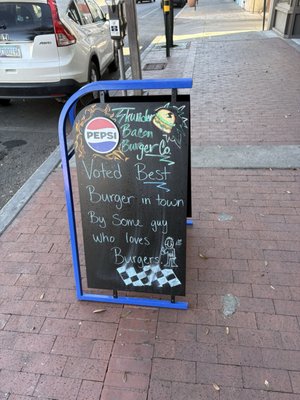 PEPSI
Thunder
Bacon
Burger Co.
Voted Best
Burger in town
By Some guy
who loves
Burgers